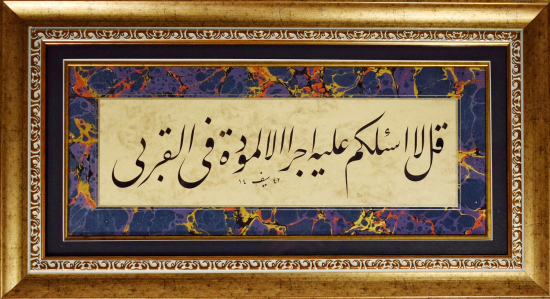 قل لا اسئلكم عليه اجرا الا المودة فى القربى
سيف ١٤٢